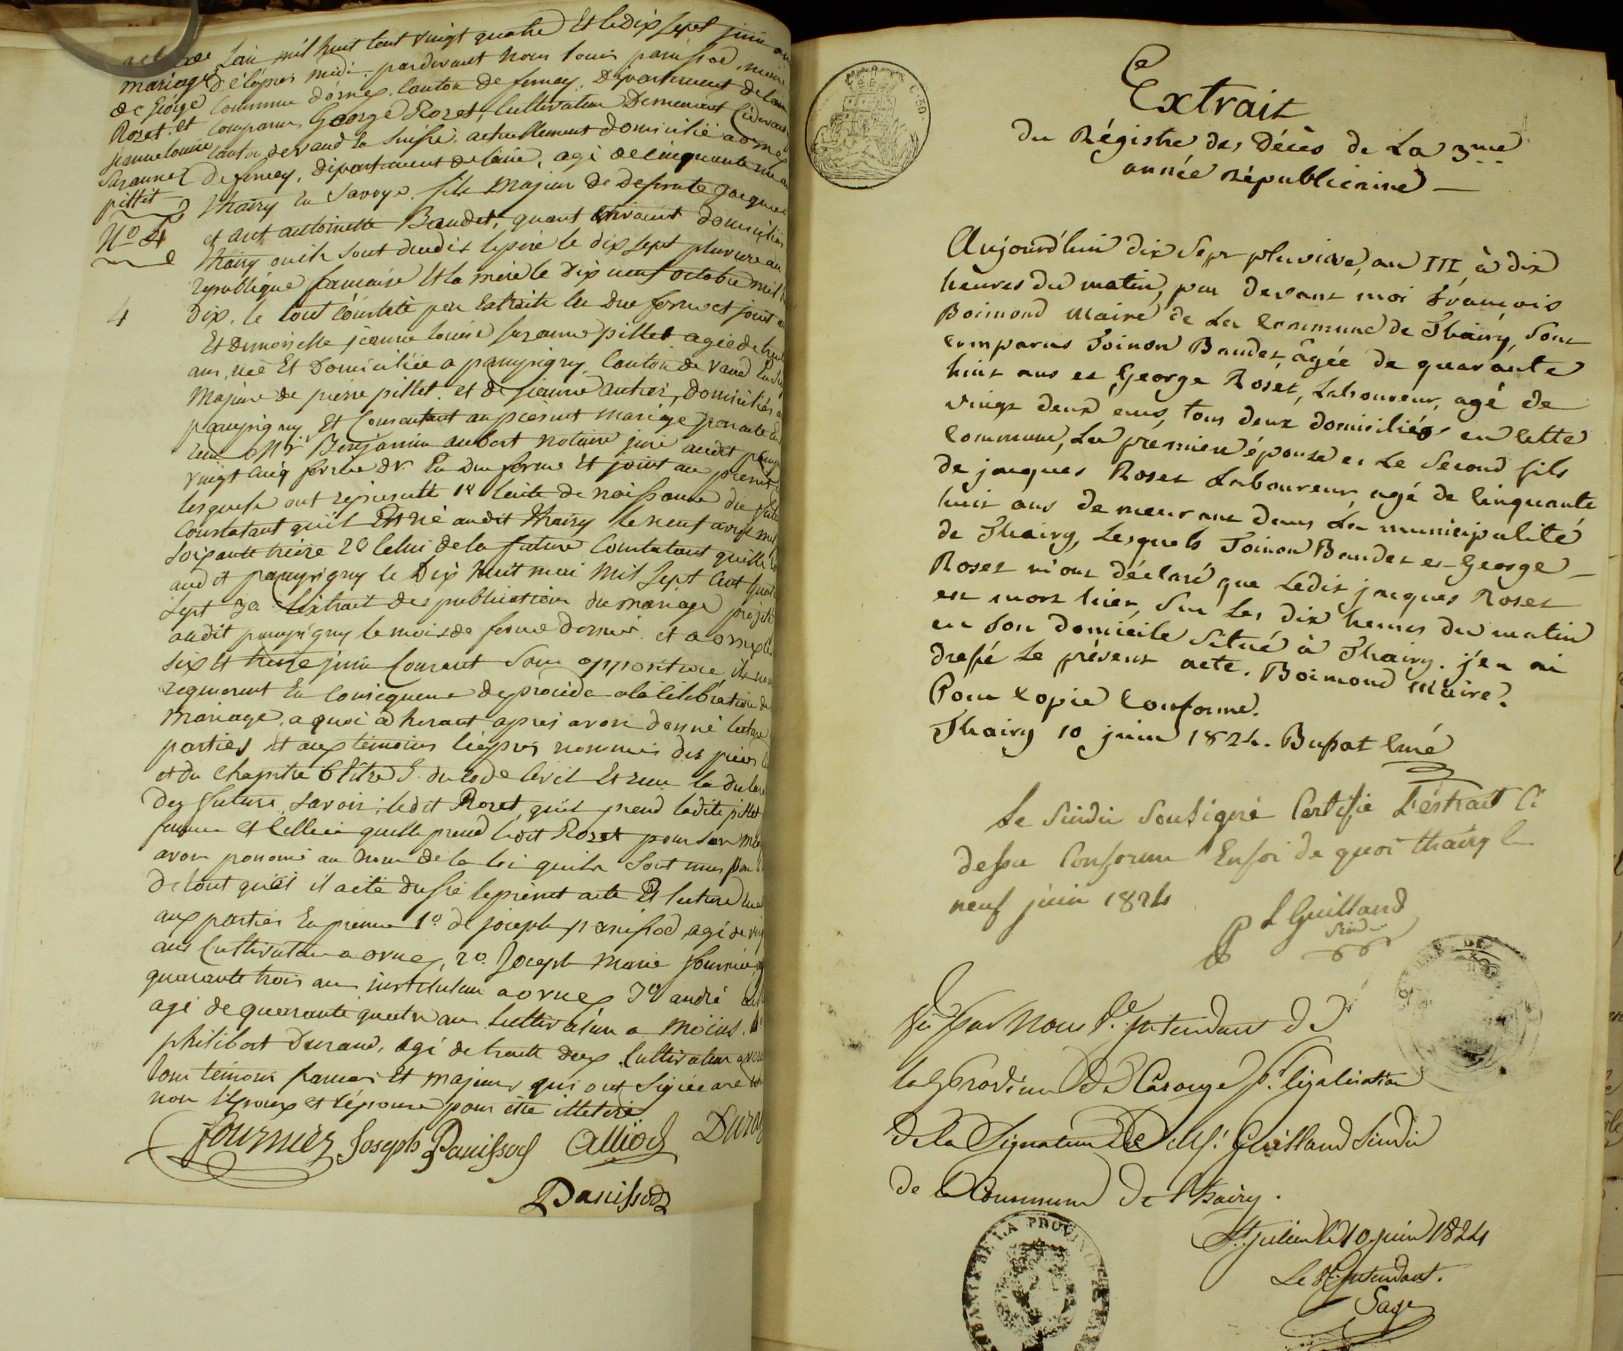 acte de
mariage
de George
Rozet et
jeanne louise
Suzanne
pillet
No 4
4
L'an mil huit cent vingt quatre Et le dix sept juin
d'élapres midi. pardevant nous louis panissod, maire
Commune dornex. Canton de ferney. Département de Lain
comparus George Rozet, Cultivateur Demeurant
canton de vaud la Suisse. actuellement domicilié a ornex
de ferney, département de l'ain, agé de cinquante
thairy en Savoye. fils majeur de defunts Jacques
et antoinette Baudet, quant vivaient domiciliés
thairy ou ils sont décédés le père le dix sept pluviose an
république francaise Et la mère le Dix neuf octobre mil
dix. le tout constaté par Extraits en due forme et joint
Et Demoiselle jeanne louise suzanne pillet agée de
ans, née Et Domiciliée a pampigny Canton de Vaud En
Majeure de pierre pillet et de jeanne , domiciliés
pampigny Et Consentant au présent mariage par acte
reçu Mr Benjamin aubert notaire juré audit
vingt cinq En Due forme Et joint au present
lesquels ont représenté 1o lacte de naissance du futur
Constatant qu'il Est né audit thairy le neuf avril mil
soixante treize 2o Celui de la future Constatant quelle
audit pampigny le Dix Huit mai Mil sept Cent
sept 3o lextrait des publications du mariage projeté
audit pampigny le mois de dernier et a ornex
six Et treize juin Courant Sans opposition, ils
requierent En Conséquence de procéder à la célébration du
mariage, a quoi adhérant apres avoir donné lecture
parties et aux témoins ci apres nommés des pièces
et du chapitre 6 titre 5 du code Civil Et reçu la
Des futurs, savoir: ledit Rozet, qu'il prend ladite pillet
femme et Celle ci quelle prend ledit Rozet pour son
avons prononcé au nom de la loi quils sont unis par
De tout quoi il a été dressé le présent acte Et lecture
aux parties En présence 1o de joseph panissod, agé de
ans Cultivateur a ornex, 2o Joseph Marie fournier
quarante trois ans instituteur a ornex 3o andré
agé de quarante quatre ans Cultivateur a
philibert Durand, agé de trente deux Cultivateur
tous témoins francais Et majeurs qui ont signé avec
non l'époux et l'épouse pour être illetérés
fournier Joseph Panissod Alliod Durand
Panissod
Extrait
du Régistre des Décès de La 3me
année républicaine
Aujourd'hui dix Sept pluviose, an III, à dix
heures du matin, par devant moi François
Boimond Maire de La Commune de Thairy, sont
comparus Toinon Baudet, âgée de quarante
huit ans et George Roset, Laboureur, agé de
vingt deux ans, tous deux domiciliés en cette
Commune, La première épouse et Le Second fils
de jacques Roset Laboureur agé de Cinquante
huit ans demeurant dans La municipalité
de Thairy, Lesquels Toinon Baudet et George
Roset m'ont déclaré que Ledit jacques Roset
est mort hier, Sur Les dix heures du matin
en Son domicile Situé à Thairy. j'en ai
dressé Le présent acte. Boimond Maire.
Pour Copie Conforme.
Thairy 10 juin 1824. Bussat Curé
Le Sindic Soussigné Certifie L'éxtrait Ci
dessu Conforme Ensoi de quoi thairy le
neuf juin 1824
P L Guilland
Sindic
Vu par Nous Vce jntendant de
la Province de Carouge pr légalisation
De la Signature De Mr Guilland Sindic
de la Commune De Thairy.
St julien le 10 juin 1824
Le Vce jntendant.
Sage
DE LA PROVINCE